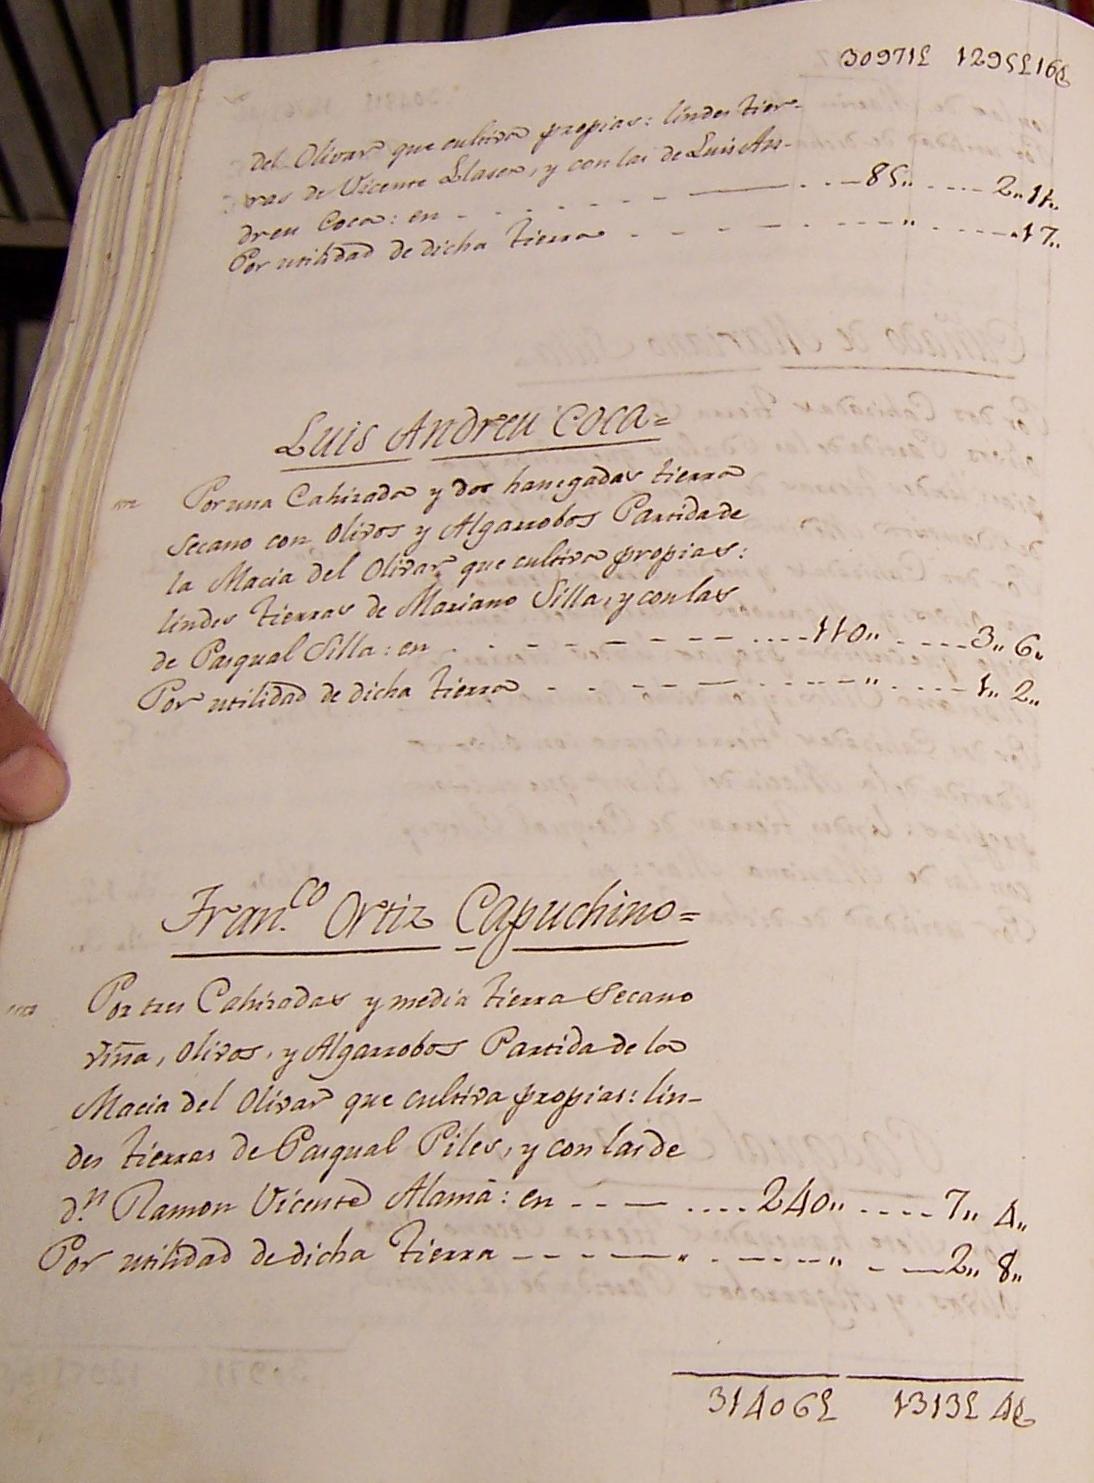 30971£ 1295£16₰
del Olivar que cultiva propias: lindes tier-
ras de Vicente Llaser, y con las de Luis An-
dreu Coca: en - - - - - 85,, - - - - 2,, 11,,
Por utilidad de dicha tierra - - - - - ,, - - - - ,,17,,
Luis Andreu Coca=
Por una Cahizada y dos hanegadas tierra
Secano con Olivos y Algarrobos Partida de
la Macia del Olivar que cultiva propias:
lindes tierras de Mariano Silla, y con las
de Pasqual Silla: en - - - - - 110,, - - - - 3,, 6,,
Por utilidad de dicha tierra - - - - - ,, - - - - 1,, 2,,
Fran.co Ortiz Capuchino=
Por tres Cahizadas y media tierra Secano
viña, Olivos, y Algarrobos Partida de la
Macia del Olivar que cultiva propias: lin-
des tierras de Pasqual Piles, y con las de
d.n Ramon Vicente Alamà: en - - - - 240,, - - - - 7,, 4,,
Por utilidad de dicha tierra - - - - ,, - - - - ,, - - 2,, 8,,
31406£ 1313£ 4₰